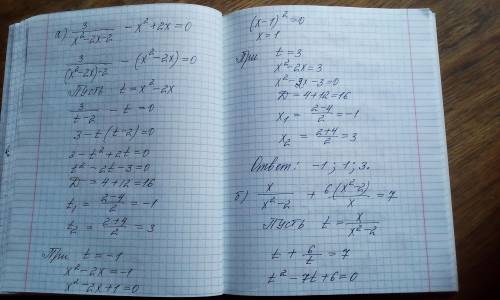 а) 3/(x²-2x-2) - x²+2x=0
3/((x²-2x)-2) - (x²-2x)=0
Пусть t=x²-2x
3/(t-2) - t=0
3-t(t-2)=0
3-t²+2t=0
t²-2t-3=0
D=4+12=16
t₁ = (2-4)/2 = -1
t₂ = (2+4)/2 = 3
При t=-1
x²-2x=-1
x²-2x+1=0
(x-1)²=0
x=1
При t=3
x²-2x=3
x²-2x-3=0
D=4+12=16
x₁ = (2-4)/2 = -1
x₂ = (2+4)/2 = 3
Ответ: -1; 1; 3.
б) x/(x²-2) + 6(x²-2)/x = 7
Пусть t = x/(x²-2)
t + 6/t = 7
t²-7t+6=0